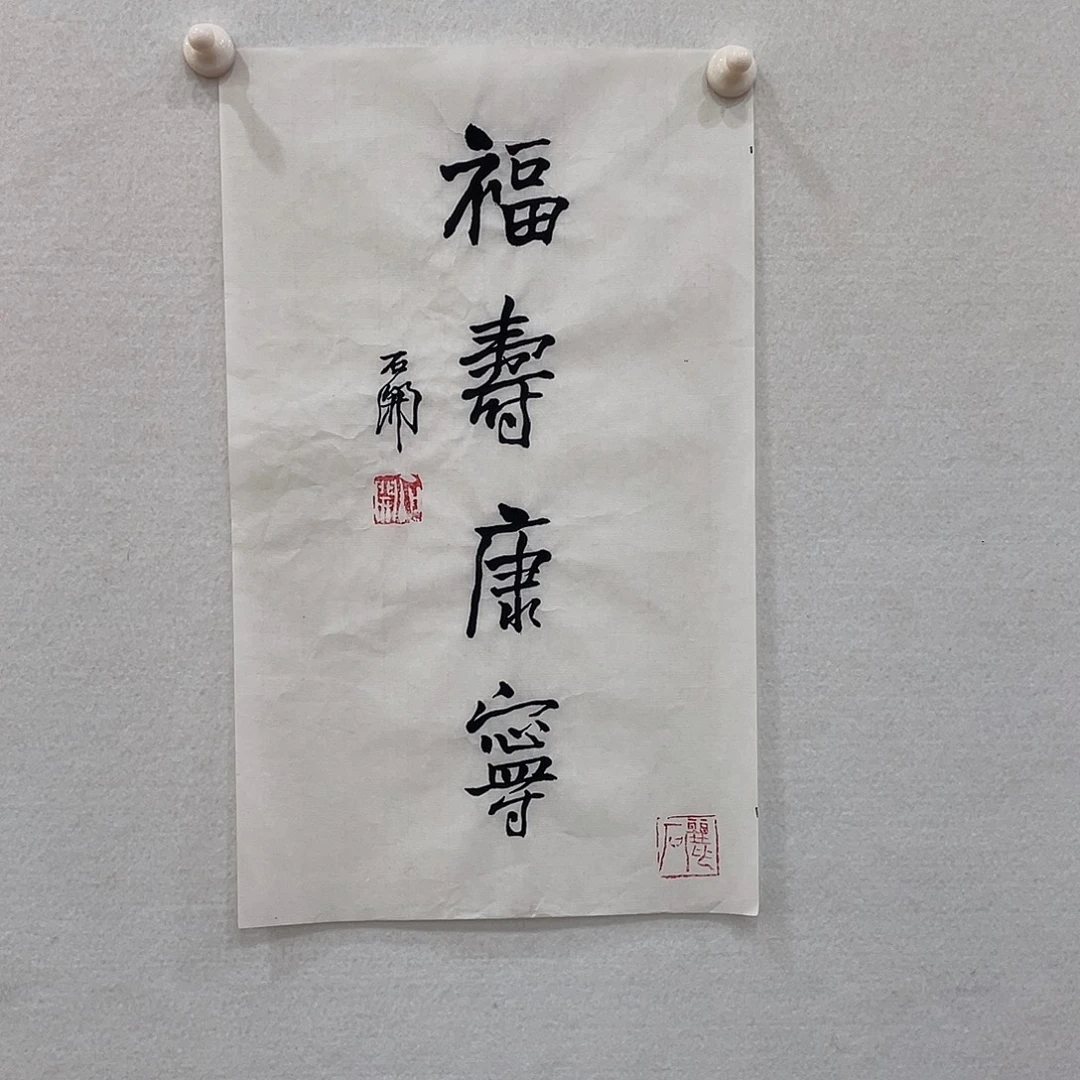 福壽康寧
石開